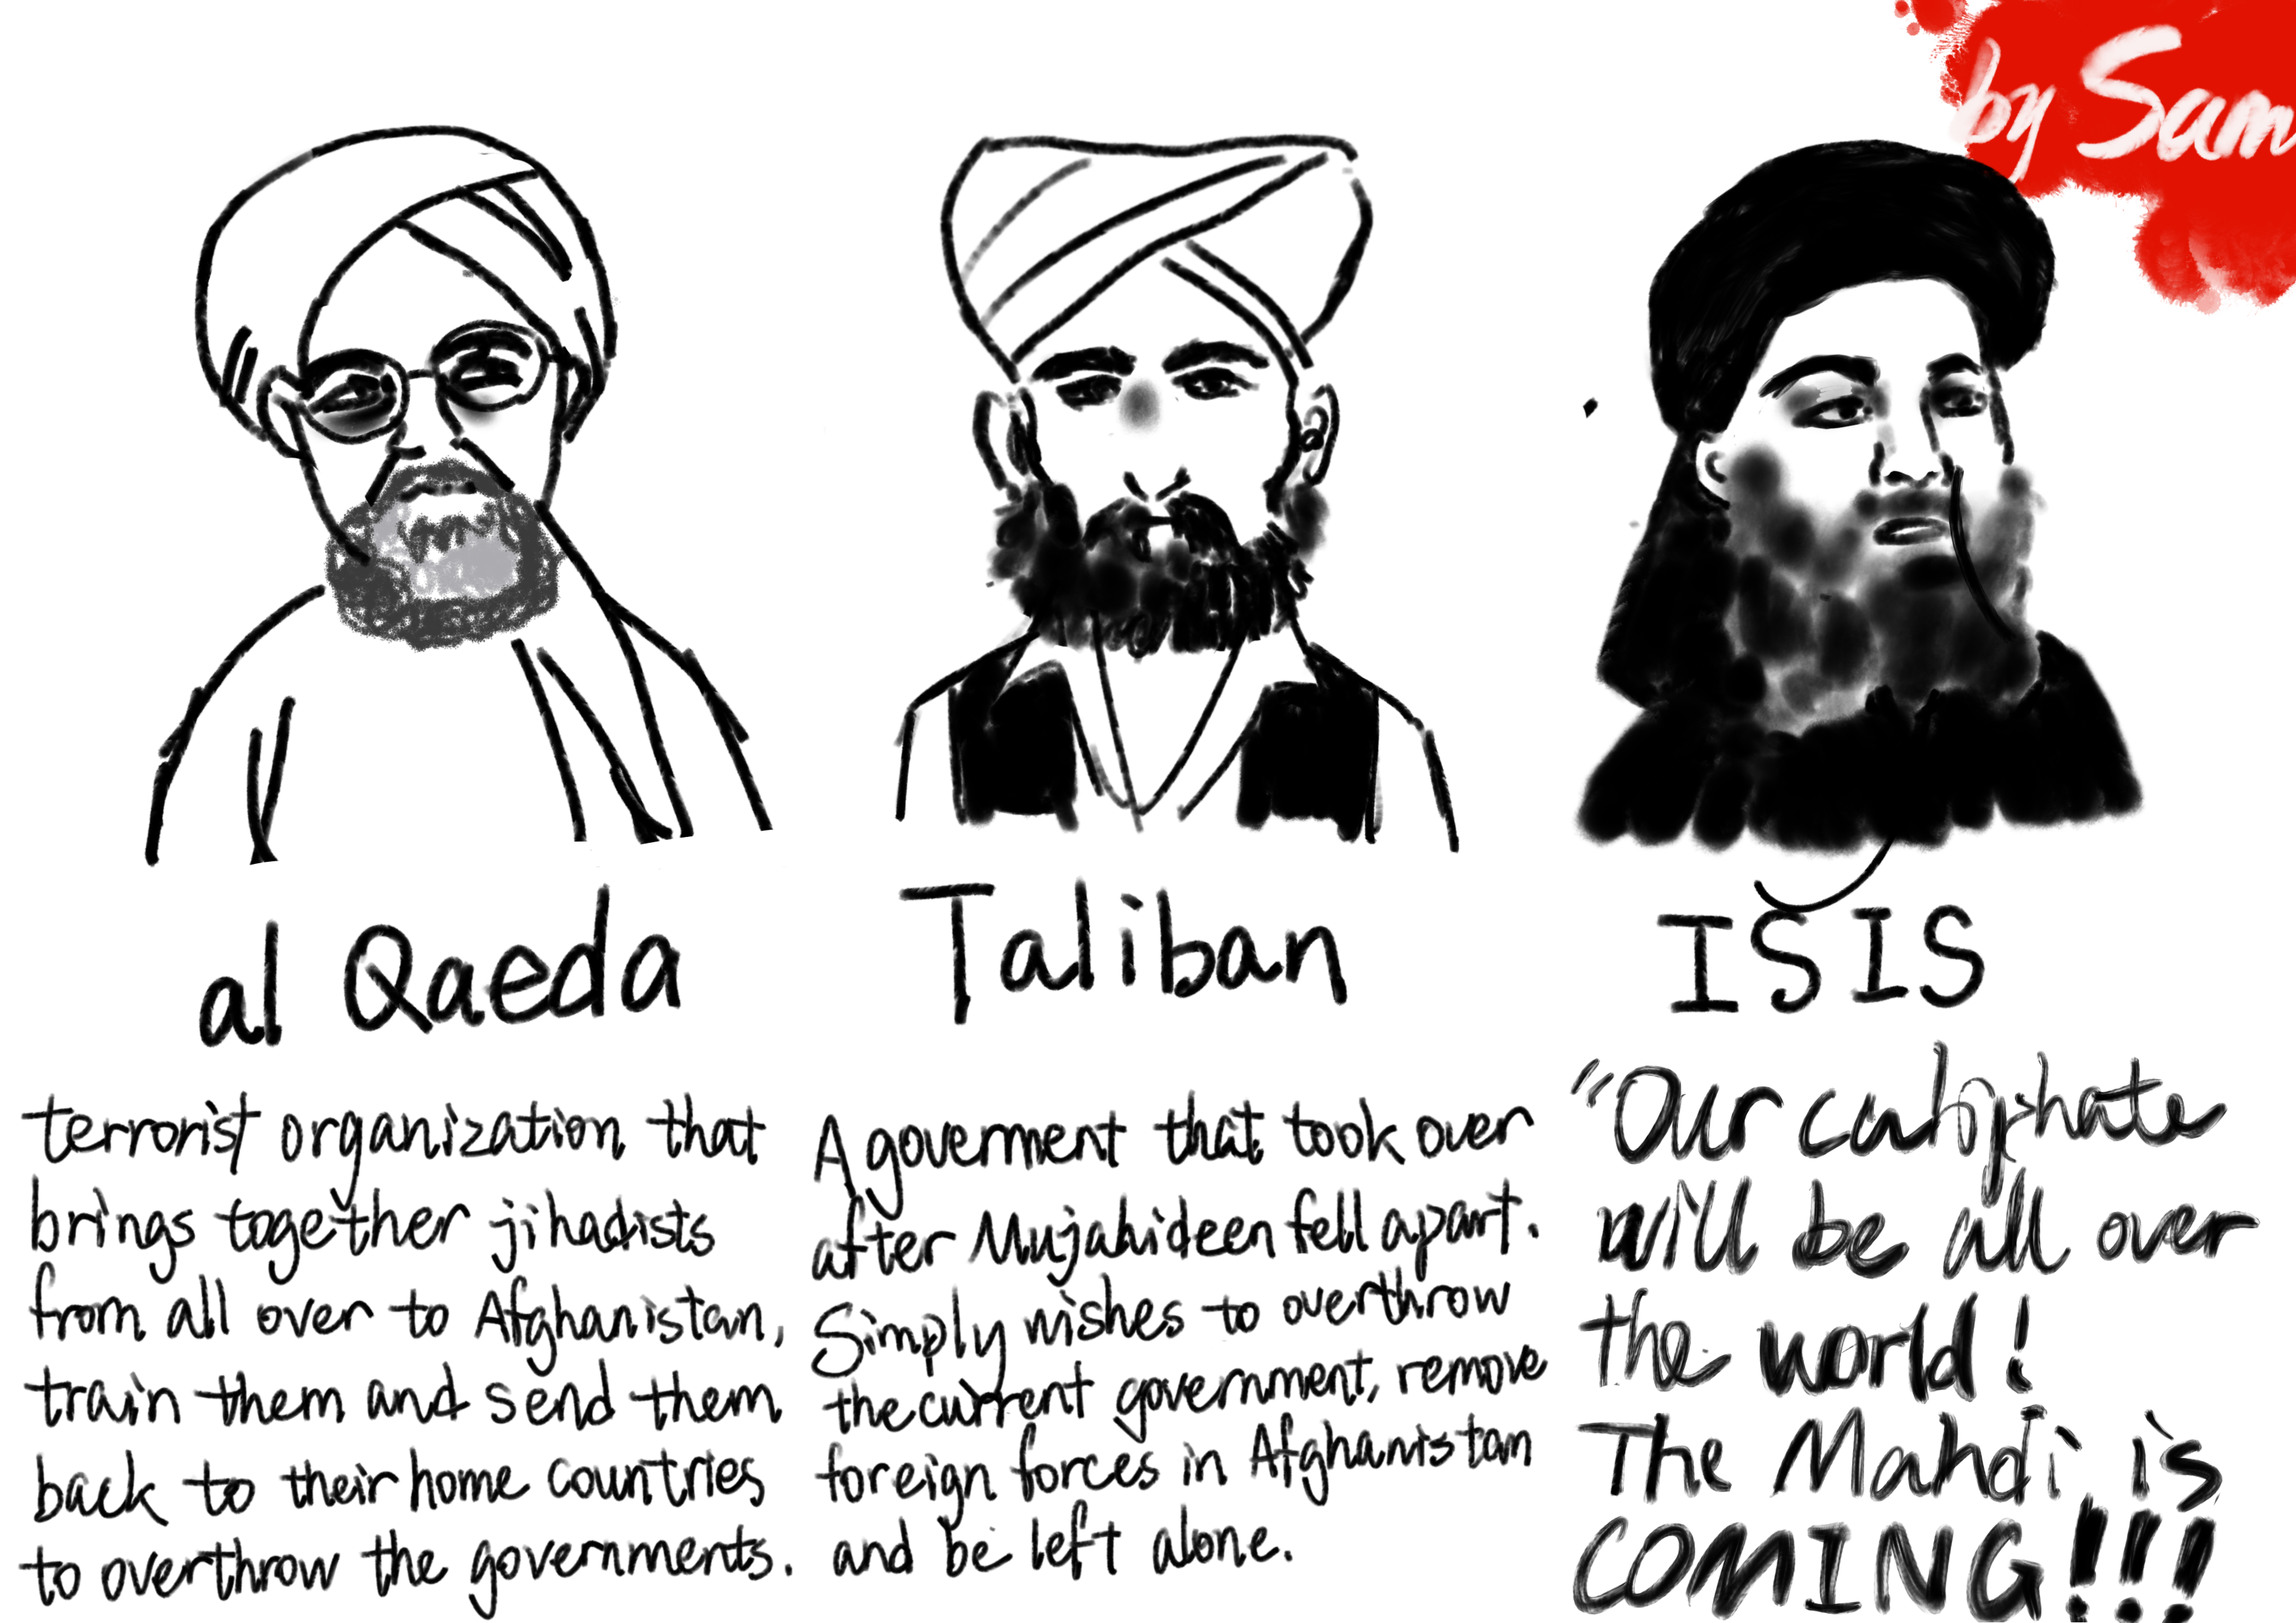 by Sam
al Qaeda
terrorist organization that
brings together jihadists
from all over to Afghanistan,
train them and send them
back to their home countries
to overthrow the governments.
Taliban
A goverment that took over
after Mujahideen fell apart.
Simply wishes to overthrow
the current government, remove
foreign forces in Afghanistan
and be left alone.
ISIS
"Our caliphate
will be all over
the world!
The Mahdi is
COMING!!!